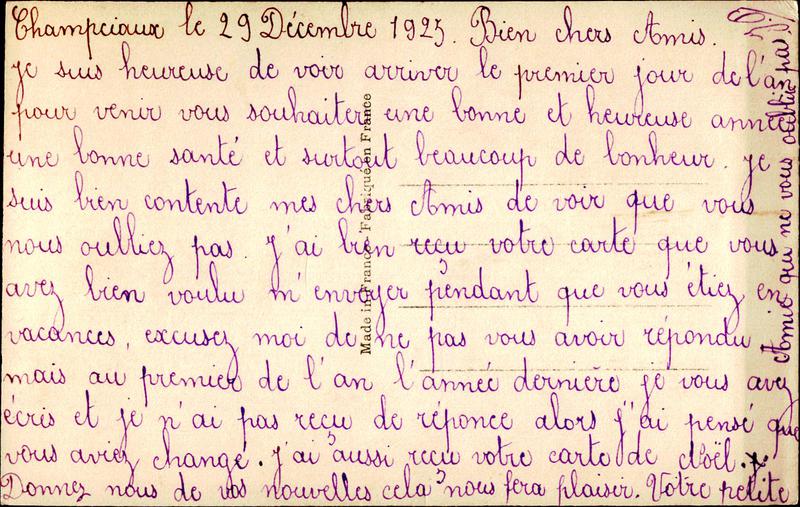 Champciaux le 29 Décembre 1925. Bien chers Amis.
je suis heureuse de voir arriver le premier jour de l'an
pour venir vous souhaiter une bonne et heureuse année
une bonne santé et surtout beaucoup de bonheur. je
suis bien contente mes chers Amis de voir que vous
nous oulliez pas. J'ai bien reçu votre carte que vous
avez bien voulu m'envoyer pendant que vous étiez en
vacances, excusez moi de ne pas vous avoir répondu
mais au premier de l'an l'année dernière je vous avez
écris et je n'ai pas reçu de réponce alors j'ai pensé que
vous aviez changé. J'ai aussi reçu votre carte de Noël.
Donnez nous de vos nouvelles cela nous fera plaisir. Votre petite
Amie qui ne vous oublie pas.
Made in France Fabriqué en France